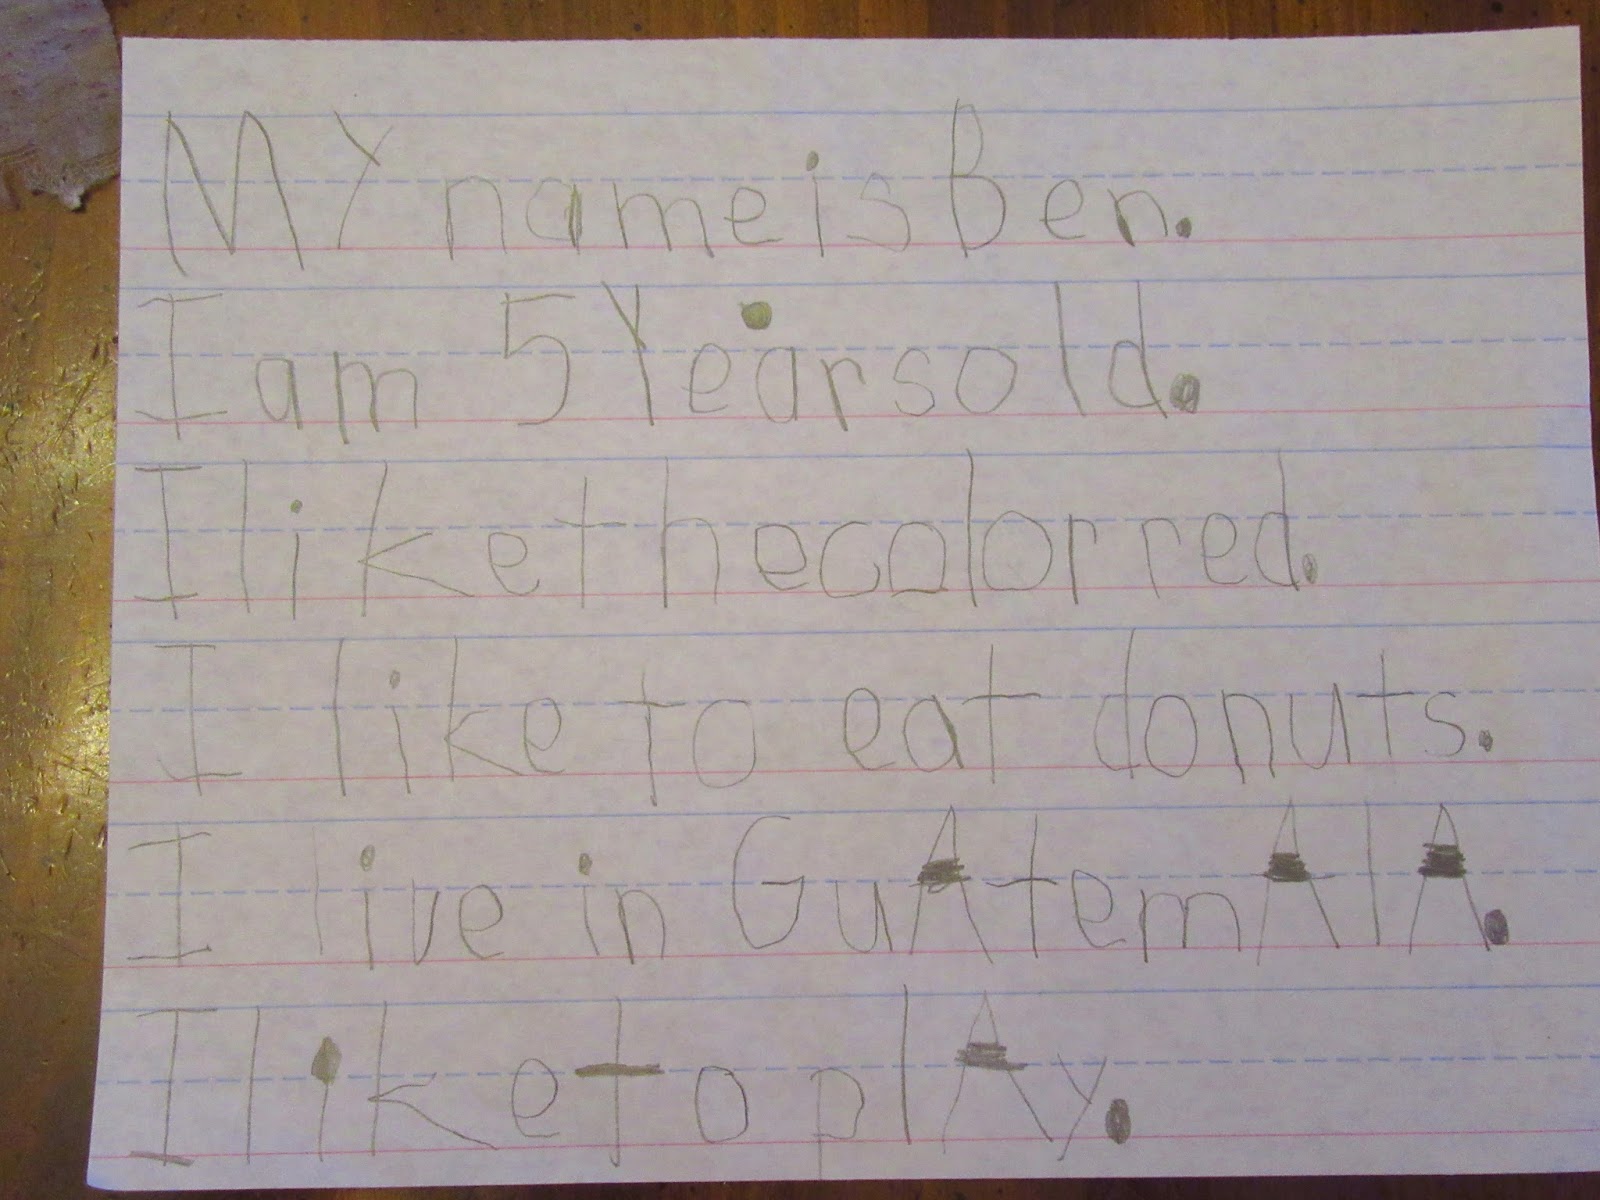 MY name is Ben.
I am 5 Years old.
I like the color red.
I like to eat donuts.
I live in GuAtemAlA.
I like to plAy.